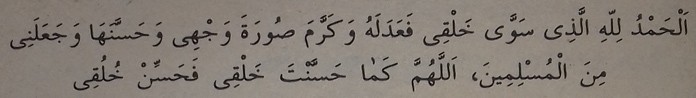 اَلْحَمْدُ لِلّٰهِ الَّذِى سَوَّى خَلْقِى فَعَدَلَهُ وَكَرَّمَ صُورَةَ وَجْهِى وَحَسَّنَهَا وَجَعَلَنِى
مِنَ الْمُسْلِمِينَ، اَللّٰهُمَّ كَمٰا حَسَّنْتَ خَلْقِى فَحَسِّنْ خُلُقِى